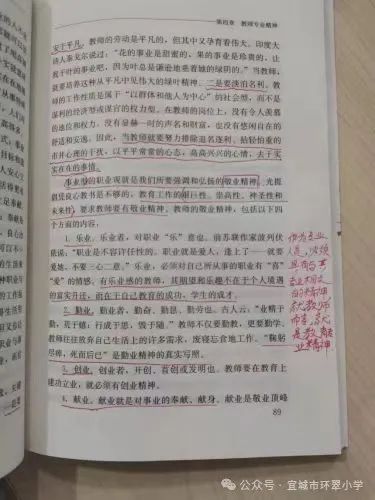 第四章 教师专业精神
安于平凡。教师的劳动是平凡的,但其中又孕育着伟大。印度大
诗人泰戈尔说过:“花的事业是甜蜜的,果的事业是珍贵的,让
我干叶的事业吧,因为叶总是谦逊地垂着她的绿荫的。”当教师,
就要培养这种从平凡中见伟大的绿叶精神。二是要淡泊名利。教
师的工作性质是属于“以群体和他人为中心”的社会型,而不是
谋利的经济型或谋官的权力型。在教师的岗位上,没有令人羡慕
的地位和权力,没有显赫一时的声名和财富,也没有悠闲自在的
舒适和安逸。因此,当教师就要努力排除追名逐利、拈轻怕重的
市井心理的干扰,以平平常常的心态,高高兴兴的心情,去干实
实在在的事情。
事业型的职业观就是我们所要强调和弘扬的敬业精神。光振
倡凭良心教书是不够的,教育工作的艰巨性、崇高性、神圣性和
未来性,要求教师要有敬业精神。教师的敬业精神,包括以下四
个方面的内容:
1. 乐业。乐业者,对职业“乐”意也。前苏联作家波列伏
依说:“职业是不容许任性的。职业就是爱人,逢上了——就要
爱她,不要三心二意。”乐业,必须对自己所从事的职业有“喜”
“爱”的情感。有乐业感的教师,其期望和乐趣不在于个人境遇
的富实升迁,而在于自己教育的成功,学生的成才。
2. 勤业。勤业者,勤奋、勤恳、勤劳也。古人云:“业精于
勤,荒于嬉;行成于思,毁于随。”教师不仅要勤教,更要勤学。
教师往往放弃自己生活上的许多需求,废寝忘食地工作。“鞠躬
尽瘁,死而后已”是勤业精神的真实写照。
3. 创业。创业者,开创、首创或发明也。教师要在教育上
建功立业,就必须有创业精神。
4. 献业。献业就是对事业的奉献、献身。献业是敬业顶峰
89
作为专业
人员,必须
具有与
专业相应
的精神
就教师
而言,就
是教师专
业精神
公众号·宜城市环翠小学